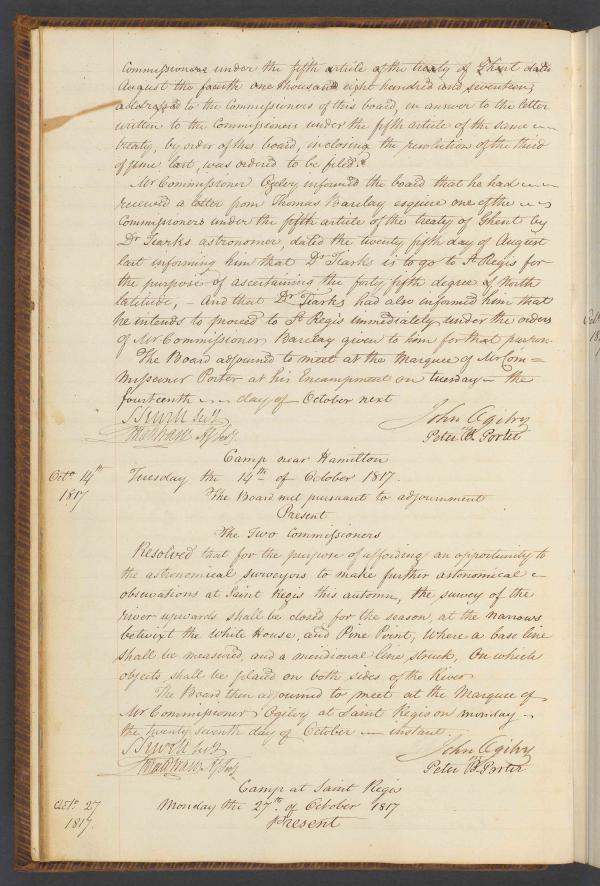 Commissioners under the fifth article of the treaty of Ghent dated
August the fourth one thousand eight hundred and seventeen,
addressed to the Commissioners of this board, in answer to the letter
written to the Commissioners under the fifth article of the same
treaty, by order of this board, inclosing the resolution of the third
of June last, was ordered to be filed.
Mr Commissioner Ogilvy informed the board that he had
received a letter from Thomas Barclay esquire one of the
Commissioners under the fifth article of the treaty of Ghent by
Dr Tiarks astronomer, dated the twenty fifth day of August
last informing him that Dr Tiarks is to go to St Regis for
the purpose of ascertaining the forty fifth degree of North
latitude, – And that Dr Tiarks had also informed him that
he intends to proceed to St Regis immediately under the orders
of Mr Commissioner Barclay given to him for that purpose.
The Board adjourned to meet at the Marquee of Mr Com=
missioner Porter at his Encampment on tuesday the
fourteenth day of October next
S Sewell Secy John Ogilvy
Peter B. Porter
Camp near Hamilton
Octr 14th Tuesday the 14th of October 1817.
1817
The Board met pursuant to adjournment
Present
The Two Commissioners
Resolved that for the purpose of affording an opportunity to
the astronomical surveyors to make further astonomical
obsevations at Saint Regis this autumn, the survey of the
river upwards shall be closed for the season, at the narrows
betwixt the White House, and Pine Point, Where a base line
shall be measured, and a meridional line struck, On which
objects shall be placed on both sides of the River
The Board then adjourned to meet at the Marquee of
Mr Commissioner Ogilvy at Saint Regis on monday
the twenty seventh day of October instant
S Sewell Secy John Ogilvy
Peter B. Porter
Camp at Saint Regis
Octr 27 Monday the 27th of October 1817
1817.
Present